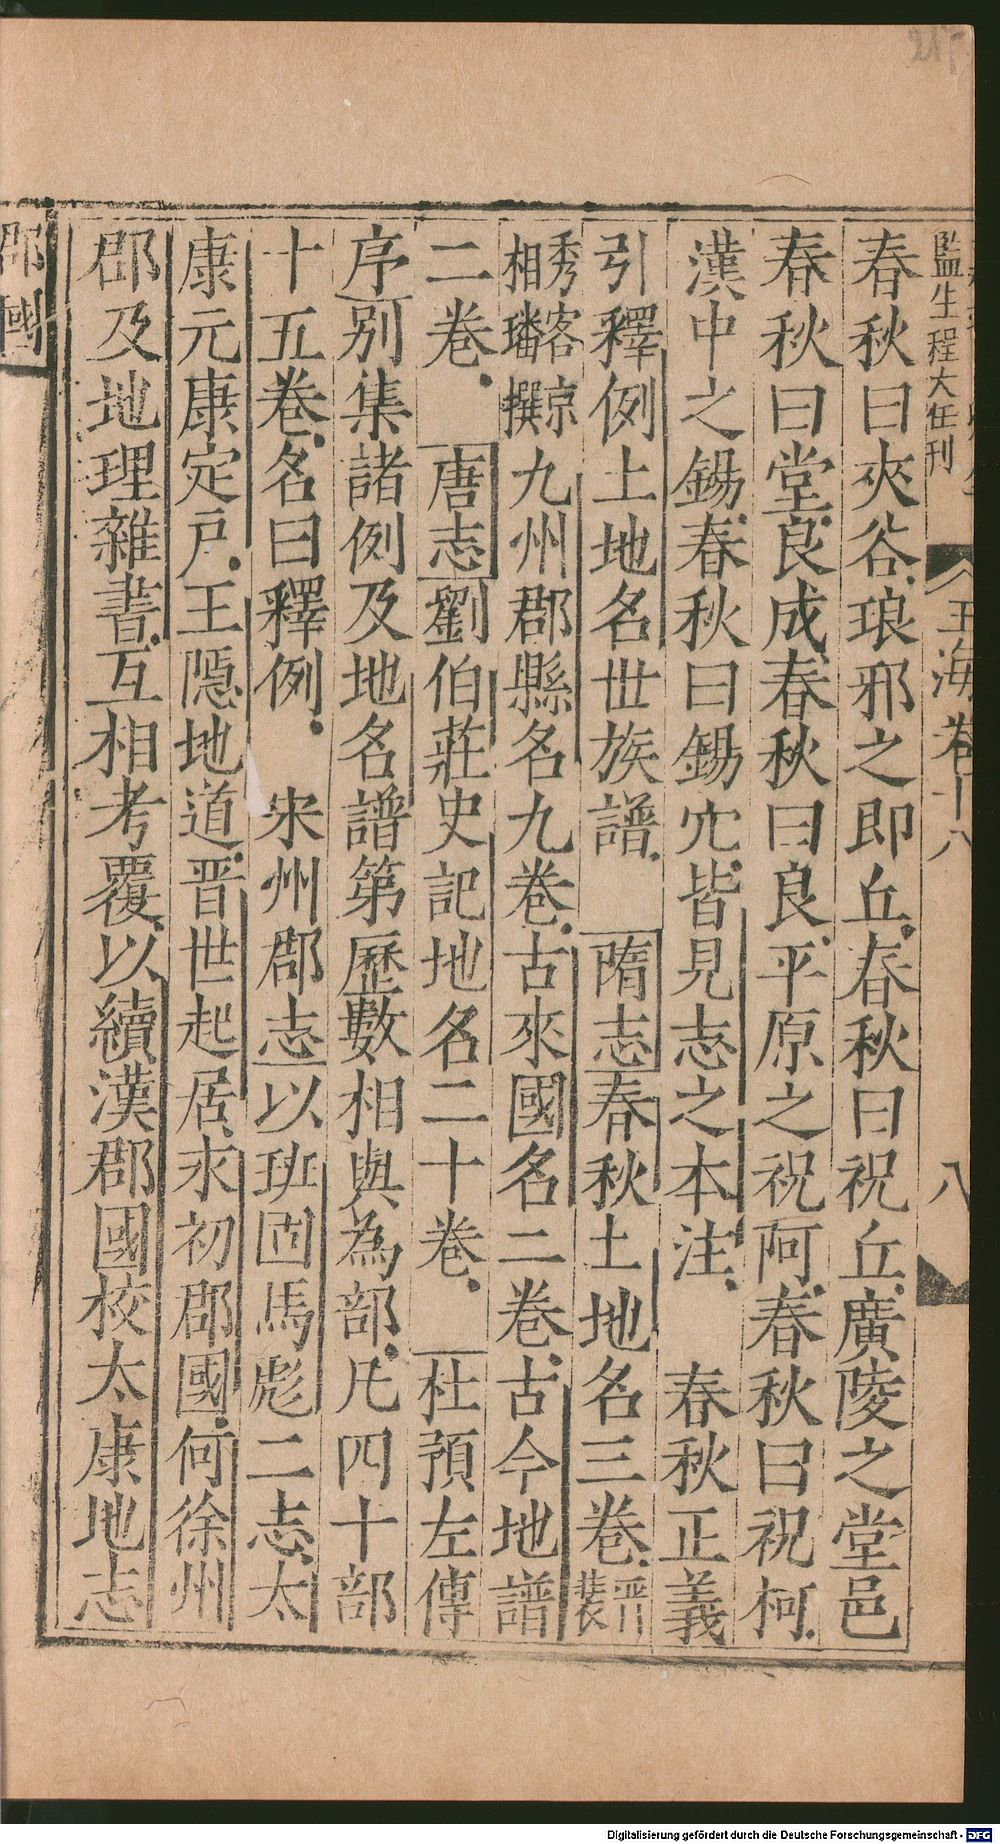 監生程大任刊
玉海卷十八
八
春秋曰夾谷琅邪之即丘春秋曰祝丘廣陵之堂邑
春秋曰堂良成春秋曰良平原之祝阿春秋曰祝柯
漢中之鍚春秋曰鍚穴皆見志之本注 春秋正義
引釋例土地名世族譜 隋志春秋土地名三卷晋裴
秀客京相璠撰九州郡縣名九卷古來國名二卷古今地譜
二卷 唐志劉伯莊史記地名二十卷 杜預左傳
序別集諸例及地名譜第歷數相與為部凡四十部
十五卷名曰釋例 宋州郡志以班固馬彪二志太
康元康定戶王隱地道晋世起居永初郡國何徐州
郡及地理雜書互相考覆以續漢郡國校太康地志
郡國
Digitalisierung gefördert durch die Deutsche Forschungsgemeinschaft - DFG